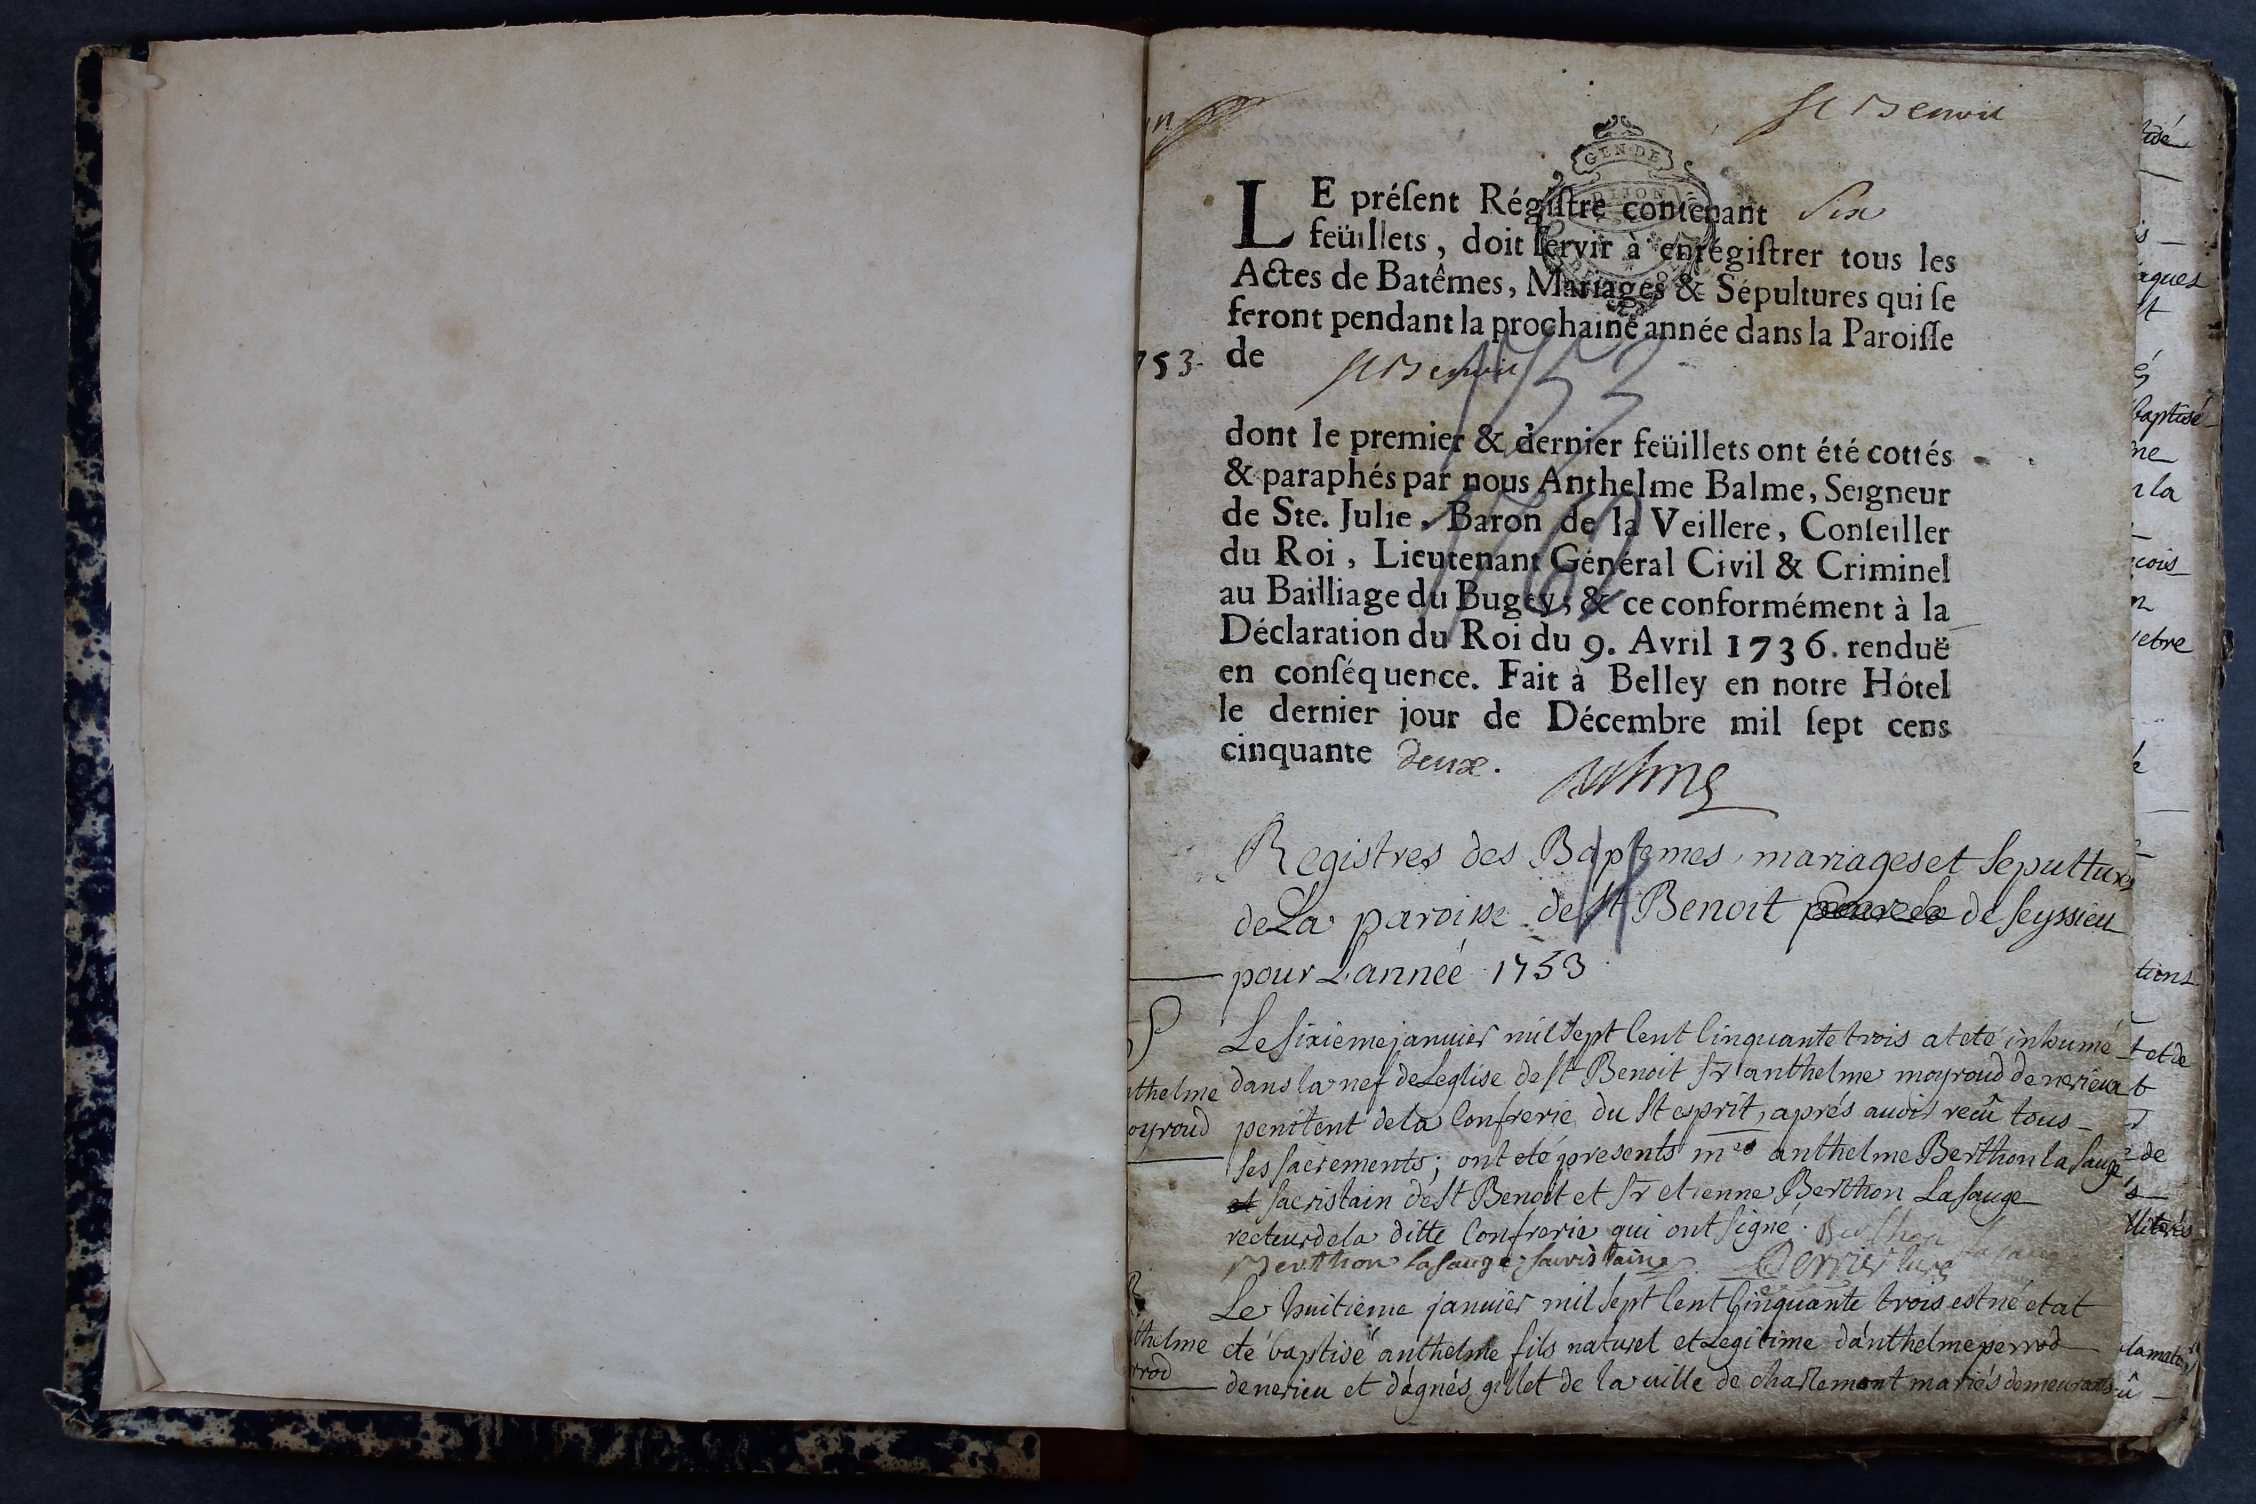 St Benoit
GEN·DE
DIJON
LE préſent Régiſtre contenant Six
feüillets, doit ſervir à enrégiſtrer tous les
Actes de Batêmes, Mariages & Sépultures qui ſe
feront pendant la prochaine année dans la Paroiſſe
753. de St Benoit
1753
dont le premier & dernier feüillets ont été cottés
& paraphés par nous Anthelme Balme, Seigneur
de Ste. Julie, Baron de la Veillere, Conſeiller
du Roi, Lieutenant Général Civil & Criminel
au Bailliage du Bugey; & ce conformément à la
Déclaration du Roi du 9. Avril 1736. renduë
en conſéquence. Fait à Belley en notre Hôtel
le dernier jour de Décembre mil ſept cens
cinquante deux.
Balme
Registres des Baptemes, mariages et Sepultures
de La paroisse de St Benoit de Seyssieu
pour L'anneé 1753
Le sixieme januier mil sept Cent Cinquante trois at eté inhumé
dans la nef de Leglise de St Benoit Sr anthelme moyroud de nerieux
penitent de la Confrerie du St esprit, aprés auoir recû tous
ses sacrements; ont eté presents mre anthelme Berthon la sauge
et sacristain de St Benoit et Sr etienne Berthon Lasauge
recteur de la ditte Confrerie qui ont signé. Berthon
Berthon lasauge sacristain. Perrier lasauge
nthelme
oyroud
Le huitieme januier mil sept Cent Cinquante trois est né et at
eté baptisé anthelme fils naturel et Legitime d'anthelme perrod
de nerieu et d'agnés gillet de la uille de charlemont mariés demeurants
thelme
rrod